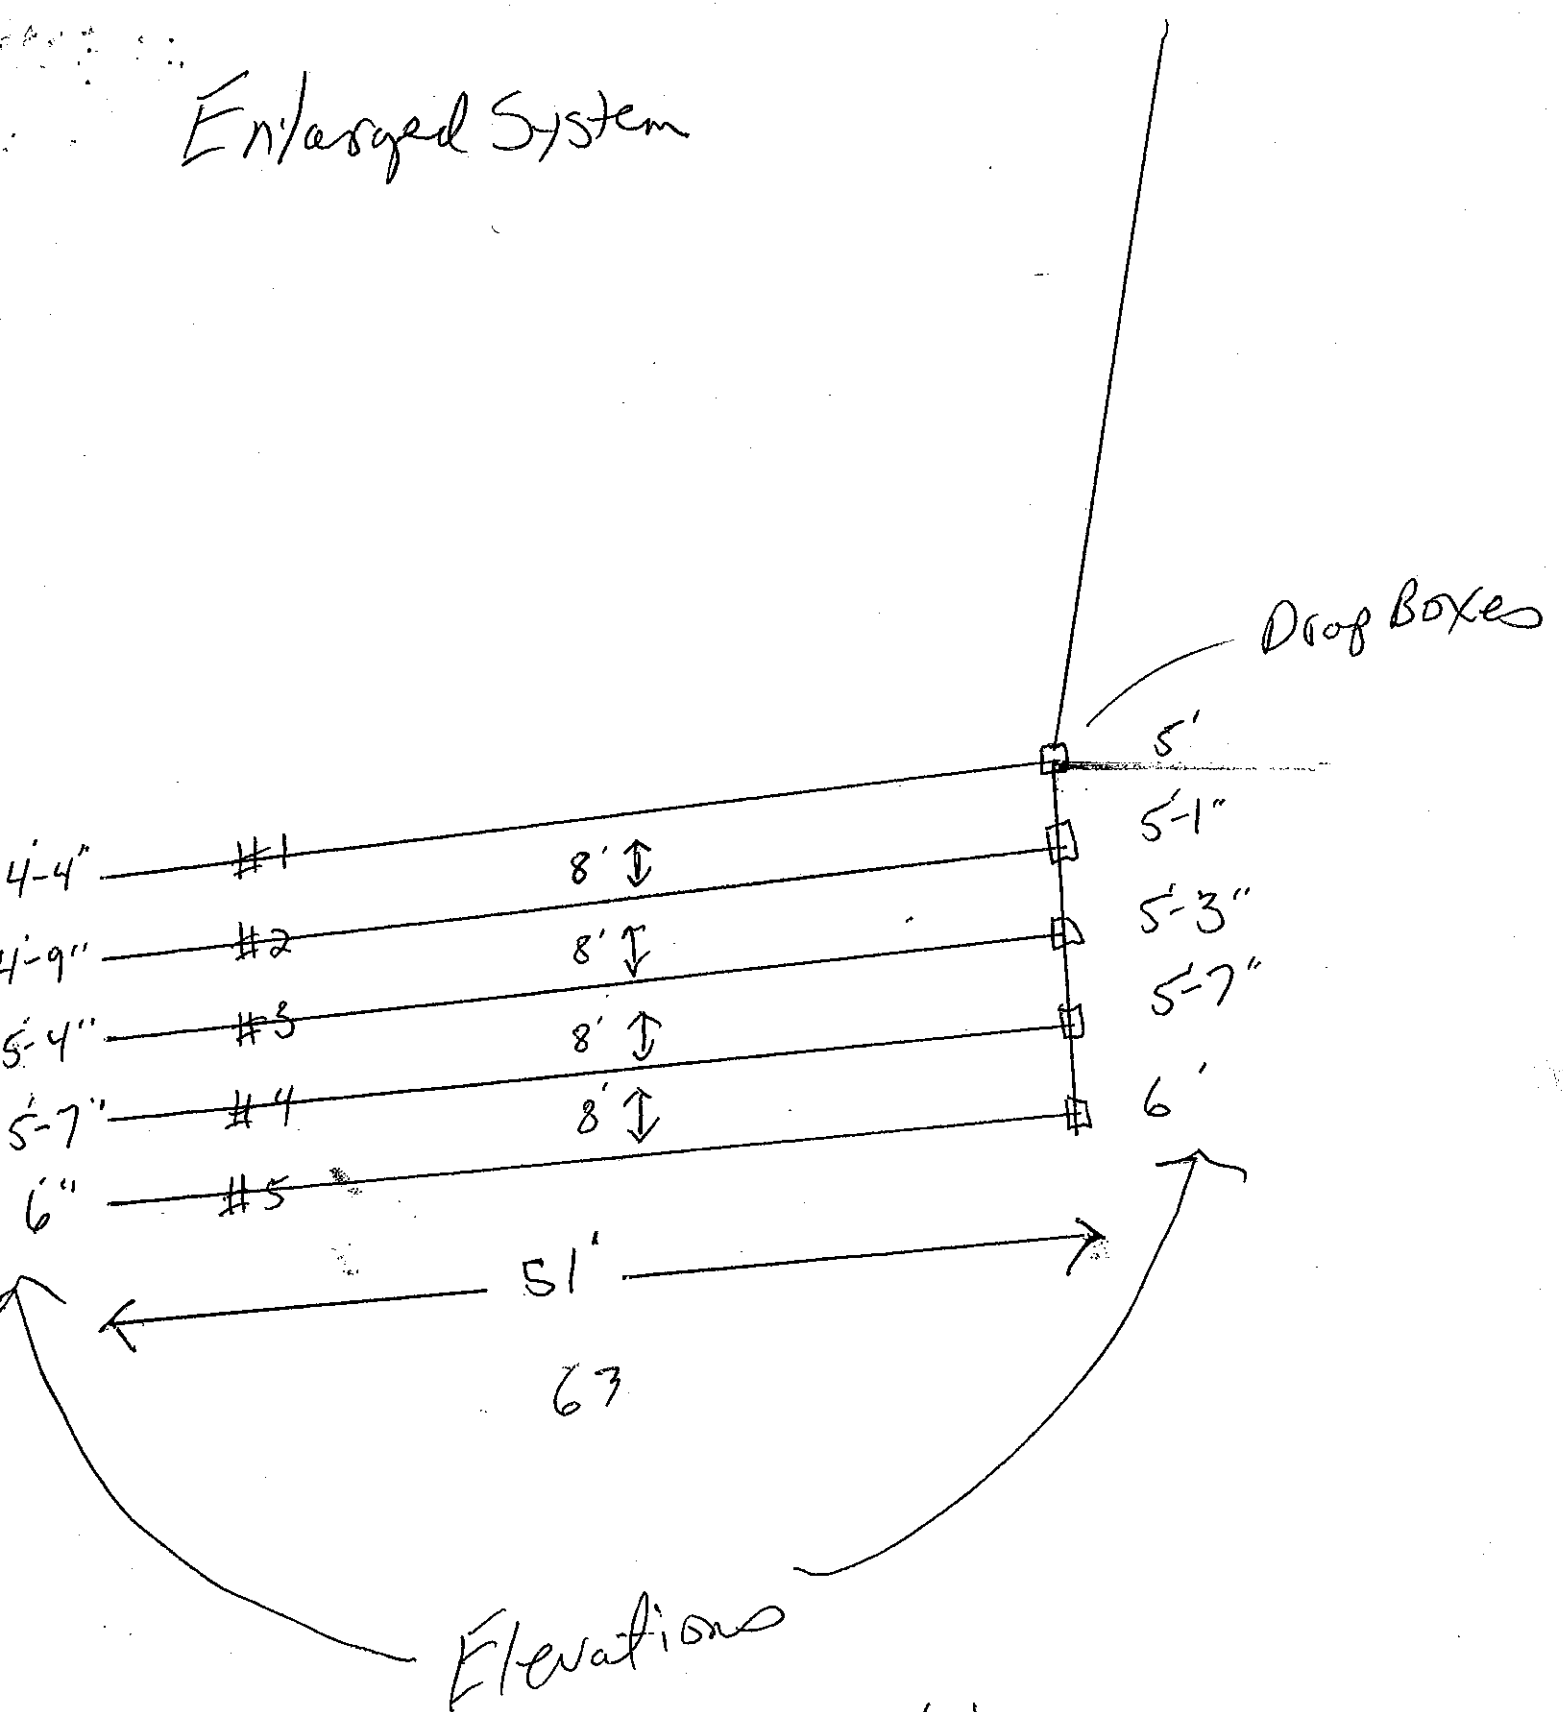 Enlarged System
Drop Boxes
5'
5'-1"
4'-4" #1 8'
5'-3"
4'-9" #2 8'
5'-7"
5'-4" #3 8'
6'
5'-7" #4 8'
6" #5
51'
63
Elevations